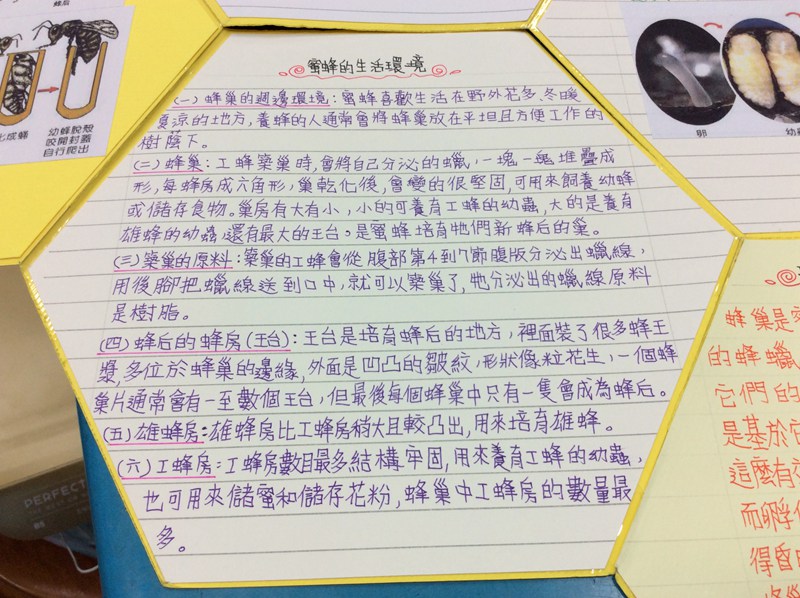 蜂后
化成蛹
幼蜂脫殼
咬開封蓋
自行爬出
卵
蜜蜂的生活環境
(一)蜂巢的週邊環境:蜜蜂喜歡生活在野外花多、冬暖
夏涼的地方,養蜂的人通常會將蜂巢放在平坦且方便工作的
樹蔭下。
(二)蜂巢:工蜂築巢時,會將自己分泌的蠟,一塊一塊堆疊成
形,每蜂房成六角形,巢乾化後,會變的很堅固,可用來飼養幼蜂
或儲存食物。巢房有大有小,小的可養育工蜂的幼蟲,大的是養育
雄蜂的幼蟲還有最大的王台。是蜜蜂培育牠們新蜂后的巢。
(三)築巢的原料:築巢的工蜂會從腹部第4到7節腹版分泌出蠟線,
用後腳把蠟線送到口中,就可以築巢了,牠分泌出的蠟線原料
是樹脂。
(四)蜂后的蜂房(王台):王台是培育蜂后的地方,裡面裝了很多蜂王
漿,多位於蜂巢的邊緣,外面是凹凸的皺紋,形狀像粒花生,一個蜂
巢片通常會有一至數個王台,但最後每個蜂巢中只有一隻會成為蜂后。
(五)雄蜂房:雄蜂房比工蜂房稍大且較凸出,用來培育雄蜂。
(六)工蜂房:工蜂房數目最多結構牢固,用來養育工蜂的幼蟲,
也可用來儲蜜和儲存花粉,蜂巢中工蜂房的數量最
多。
蜂巢是
的蜂蠟
它們的
是基於它
這麼有
而孵
得昏
PERFECT